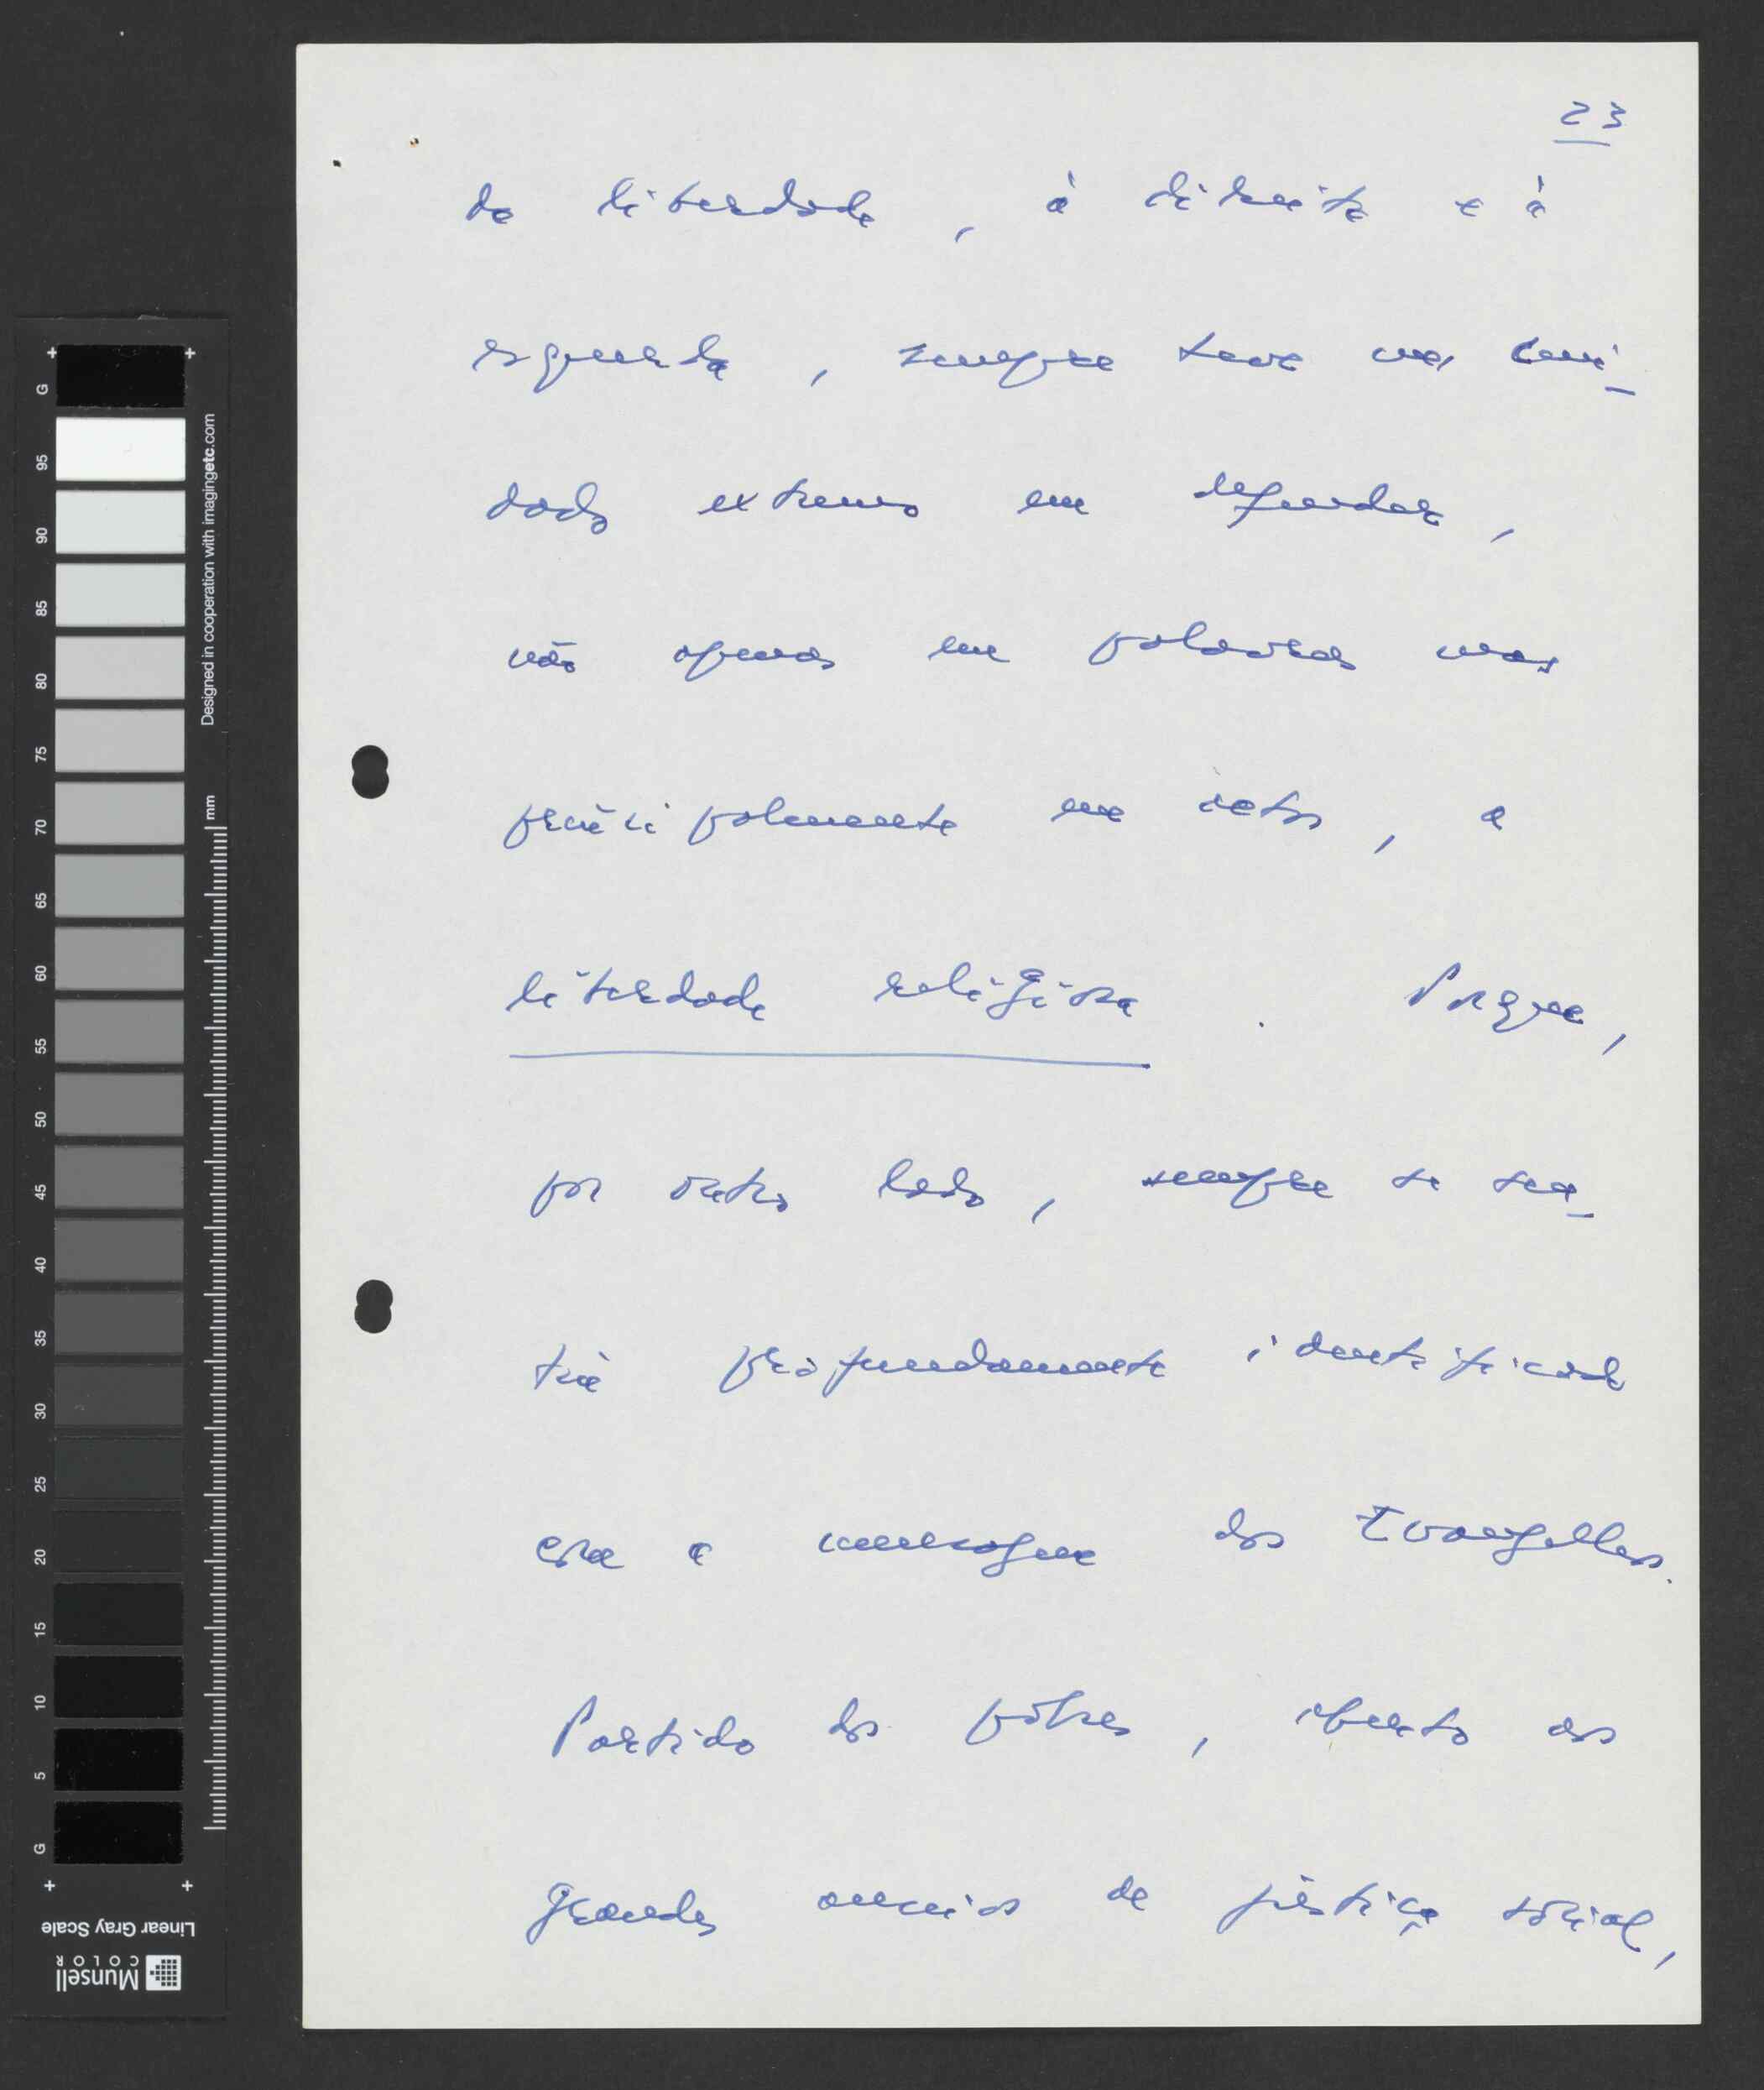 23
da liberdade, à direita e à
esquerda, sempre teve um cui-
dado extremo em defender,
não apenas em palavras mas
principalmente em actos, a
liberdade religiosa. Porque,
por outro lado, sempre se sen-
tiu profundamente identificado
com a mensagem dos Evangelhos.
Partido dos pobres, aberto aos
grandes anseios de justiça social,
G
95
90
85
80
75
70
65
60
55
50
45
40
35
30
25
20
15
10
5
G
Designed in cooperation with imagingetc.com
mm
Linear Gray Scale
Munsell
COLOR